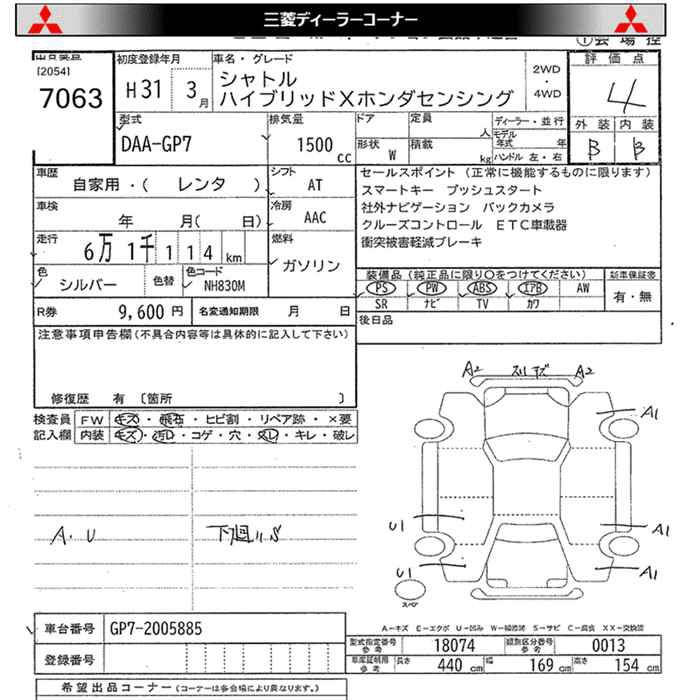 三菱ディーラーコーナー
[2054]
7063
初度登録年月
H 31 3 月
車名・グレード
シャトル
ハイブリッドXホンダセンシング
2WD
・
4WD
評価点
4
外装 内装
B B
型式
DAA-GP7
排気量
1500 cc
ドア 定員 人
形状 W 積載 kg
ディーラー・並行
モデル年式 年
ハンドル 左・右
車歴
自家用・( レンタ )
シフト
AT
車検
年 月( 日)
冷房
AAC
走行
6万 1千 1 1 4 km
燃料
ガソリン
色
シルバー
色替
色コード
NH830M
R券 9,600 円
名変通知期限 月 日
セールスポイント (正常に機能するものに限ります)
スマートキー プッシュスタート
社外ナビゲーション バックカメラ
クルーズコントロール ETC車載器
衝突被害軽減ブレーキ
装備品(純正品に限り○をつけてください)
PS PW ABS エアB AW
SR ナビ TV カワ
新車保証書
有・無
後日品
注意事項申告欄(不具合内容等は具体的に記入して下さい)
修復歴 有 〔箇所 〕
検査員
記入欄
FW キズ・飛石・ヒビ割・リペア跡・×要
内装 キズ・汚レ・コゲ・穴・スレ・キレ・破レ
A2 スリキズ A2
A1
U1 A1
U1 A1
スペア
A・U
下廻りS
A-キズ E-エクボ U-凹み W-補修跡 S-サビ C-腐食 XX-交換済
車台番号 GP7-2005885
登録番号
型式指定番号
参考
18074
類別区分番号
参考
0013
車庫証明用
参考
長さ 440 cm 幅 169 cm 高さ 154 cm
希望出品コーナー(コーナーは各会場により異なります。)